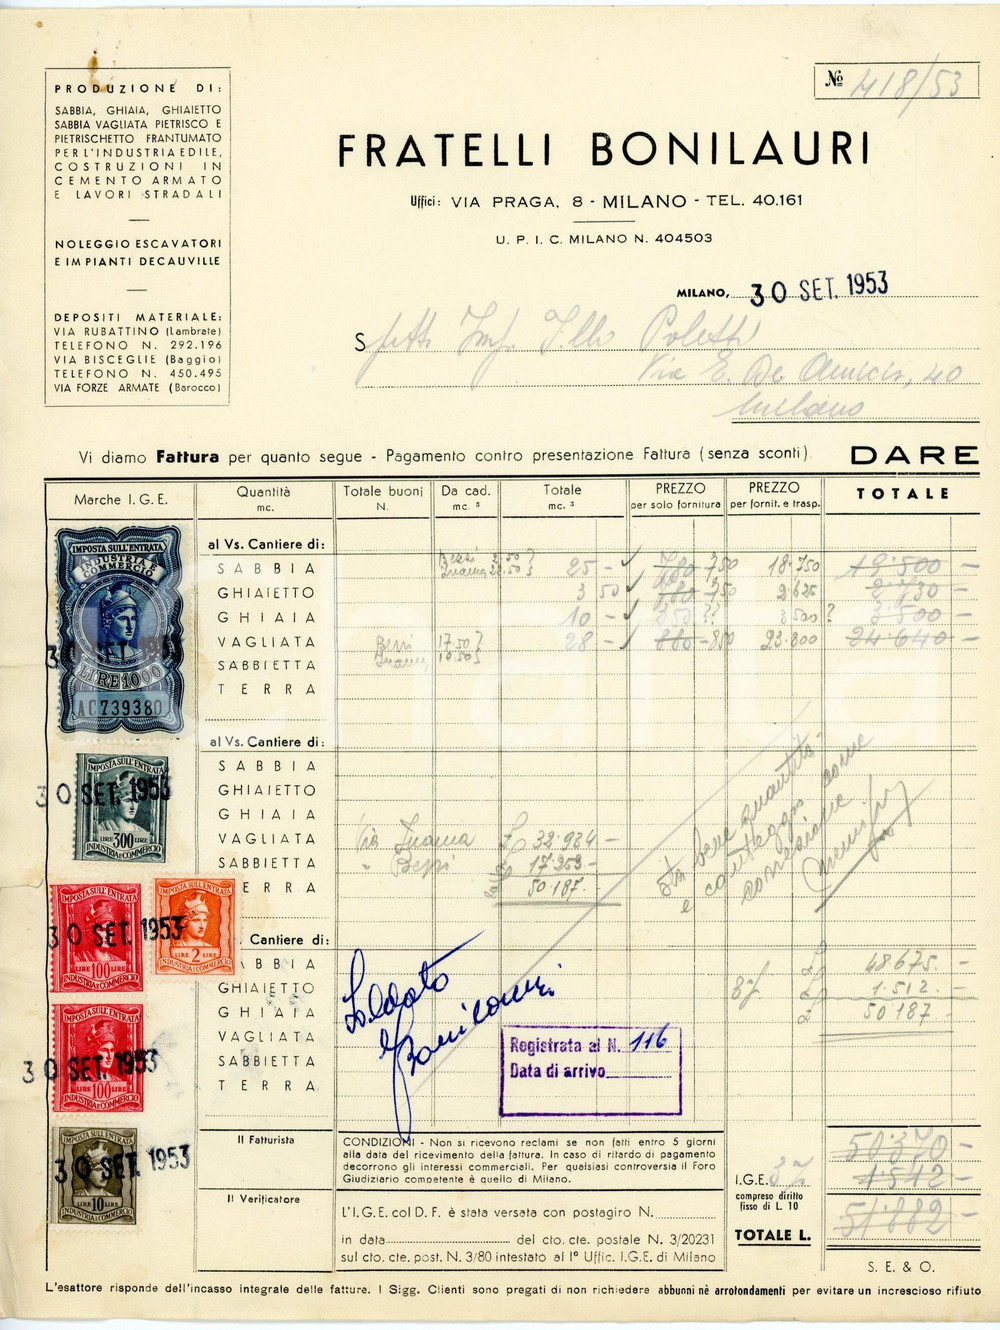 PRODUZIONE DI:
SABBIA, GHIAIA, GHIAIETTO
SABBIA VAGLIATA PIETRISCO E
PIETRISCHETTO FRANTUMATO
PER L'INDUSTRIA EDILE,
COSTRUZIONI IN
CEMENTO ARMATO
E LAVORI STRADALI
NOLEGGIO ESCAVATORI
E IMPIANTI DECAUVILLE
DEPOSITI MATERIALE:
VIA RUBATTINO (Lambrate)
TELEFONO N. 292.196
VIA BISCEGLIE (Baggio)
TELEFONO N. 450.495
VIA FORZE ARMATE (Barocco)
№ 418/53
FRATELLI BONILAURI
Uffici: VIA PRAGA, 8 - MILANO - TEL. 40.161
U. P. I. C. MILANO N. 404503
MILANO, 30 SET. 1953
Spett. Imp. F.lli Poletti
Via E. De Amicis, 40
Milano
Vi diamo Fattura per quanto segue - Pagamento contro presentazione Fattura (senza sconti) DARE
Marche I. G. E. Quantità mc. Totale buoni N. Da cad. mc. ³ Totale mc. ³ PREZZO per solo fornitura PREZZO per fornit. e trasp. TOTALE
al Vs. Cantiere di:
SABBIA 25 - 780 750 18.750 19.500 -
GHIAIETTO 3 50 780 750 2.625 2.730 -
GHIAIA 10 - 350 ?? 3.500 ? 3.500 -
VAGLIATA 17.50 28 - 880 - 850 23.800 24.640 -
SABBIETTA 10.50
TERRA
al Vs. Cantiere di:
SABBIA
GHIAIETTO
GHIAIA
VAGLIATA Via Inama £ 32.924 -
SABBIETTA " Bezzi 17.263 -
ERRA 50.187.-
Cantiere di:
ABBIA 48675. -
GHIAIETTO 3% 1.512. -
GHIAIA 50187 -
VAGLIATA
SABBIETTA
TERRA
sta bene quantità
e conteggio come
correzione
Saldato
Bonilauri
Registrata al N. 116
Data di arrivo
IMPOSTA SULL'ENTRATA
INDUSTRIA E COMMERCIO
30 SET. 1953
LIRE 1000
AC 739380
IMPOSTA SULL'ENTRATA
30 SET. 1953
LIRE 300
INDUSTRIA E COMMERCIO
IMPOSTA SULL'ENTRATA
30 SET. 1953
LIRE 100 LIRE
INDUSTRIA E COMMERCIO
IMPOSTA SULL'ENTRATA
LIRE 2 LIRE
INDUSTRIA E COMMERCIO
IMPOSTA SULL'ENTRATA
30 SET. 1953
LIRE 100 LIRE
INDUSTRIA E COMMERCIO
IMPOSTA SULL'ENTRATA
30 SET. 1953
LIRE 10 LIRE
INDUSTRIA E COMMERCIO
Il Fatturista
Il Verificatore
CONDIZIONI - Non si ricevono reclami se non fatti entro 5 giorni
alla data del ricevimento della fattura. In caso di ritardo di pagamento
decorrono gli interessi commerciali. Per qualsiasi controversia il Foro
Giudiziario competente è quello di Milano.
L'I.G.E. col D. F. è stata versata con postagiro N.
in data del cto. cte. postale N. 3/20231
sul cto. cte. post. N. 3/80 intestato al 1° Uffic. I.G.E. di Milano
50.370 -
I.G.E. 3% 1.512 -
compreso diritto
fisso di L. 10
TOTALE L. 51.882 -
S. E. & O.
L'esattore risponde dell'incasso integrale delle fatture. I Sigg. Clienti sono pregati di non richiedere abbunni nè arrotondamenti per evitare un increscioso rifiuto